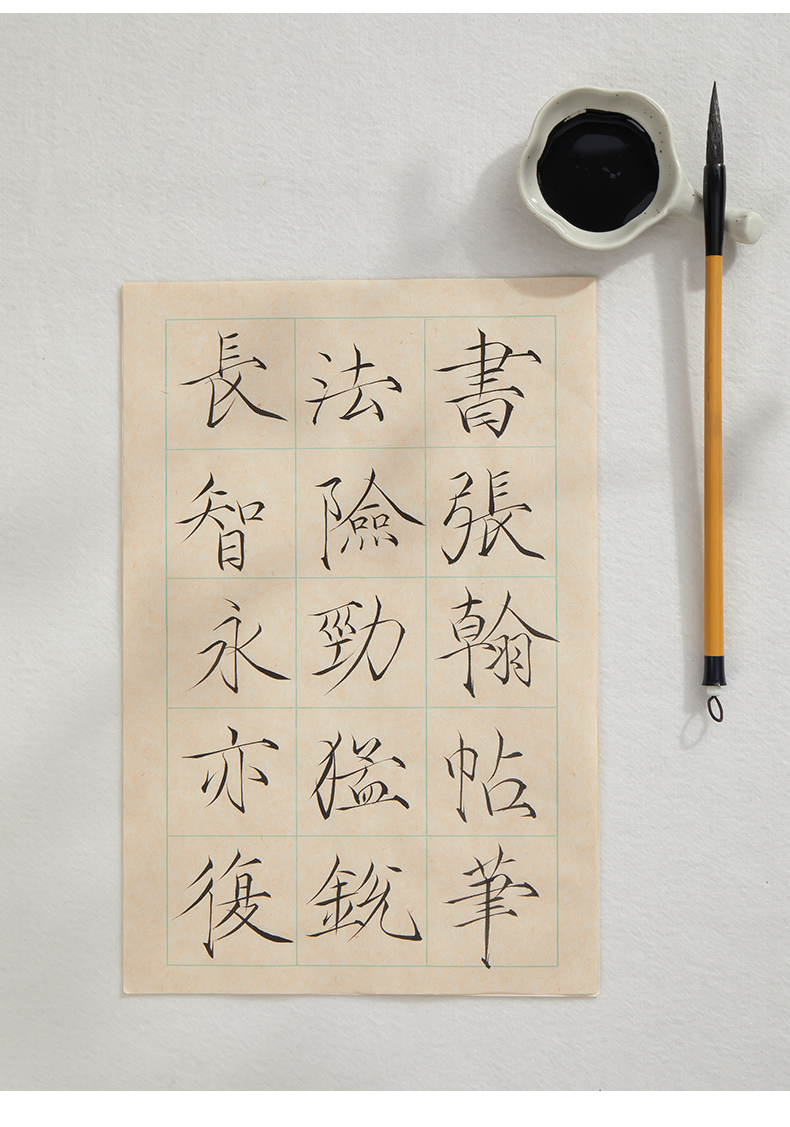 書張翰帖筆
法險勁猛銳
長智永亦復